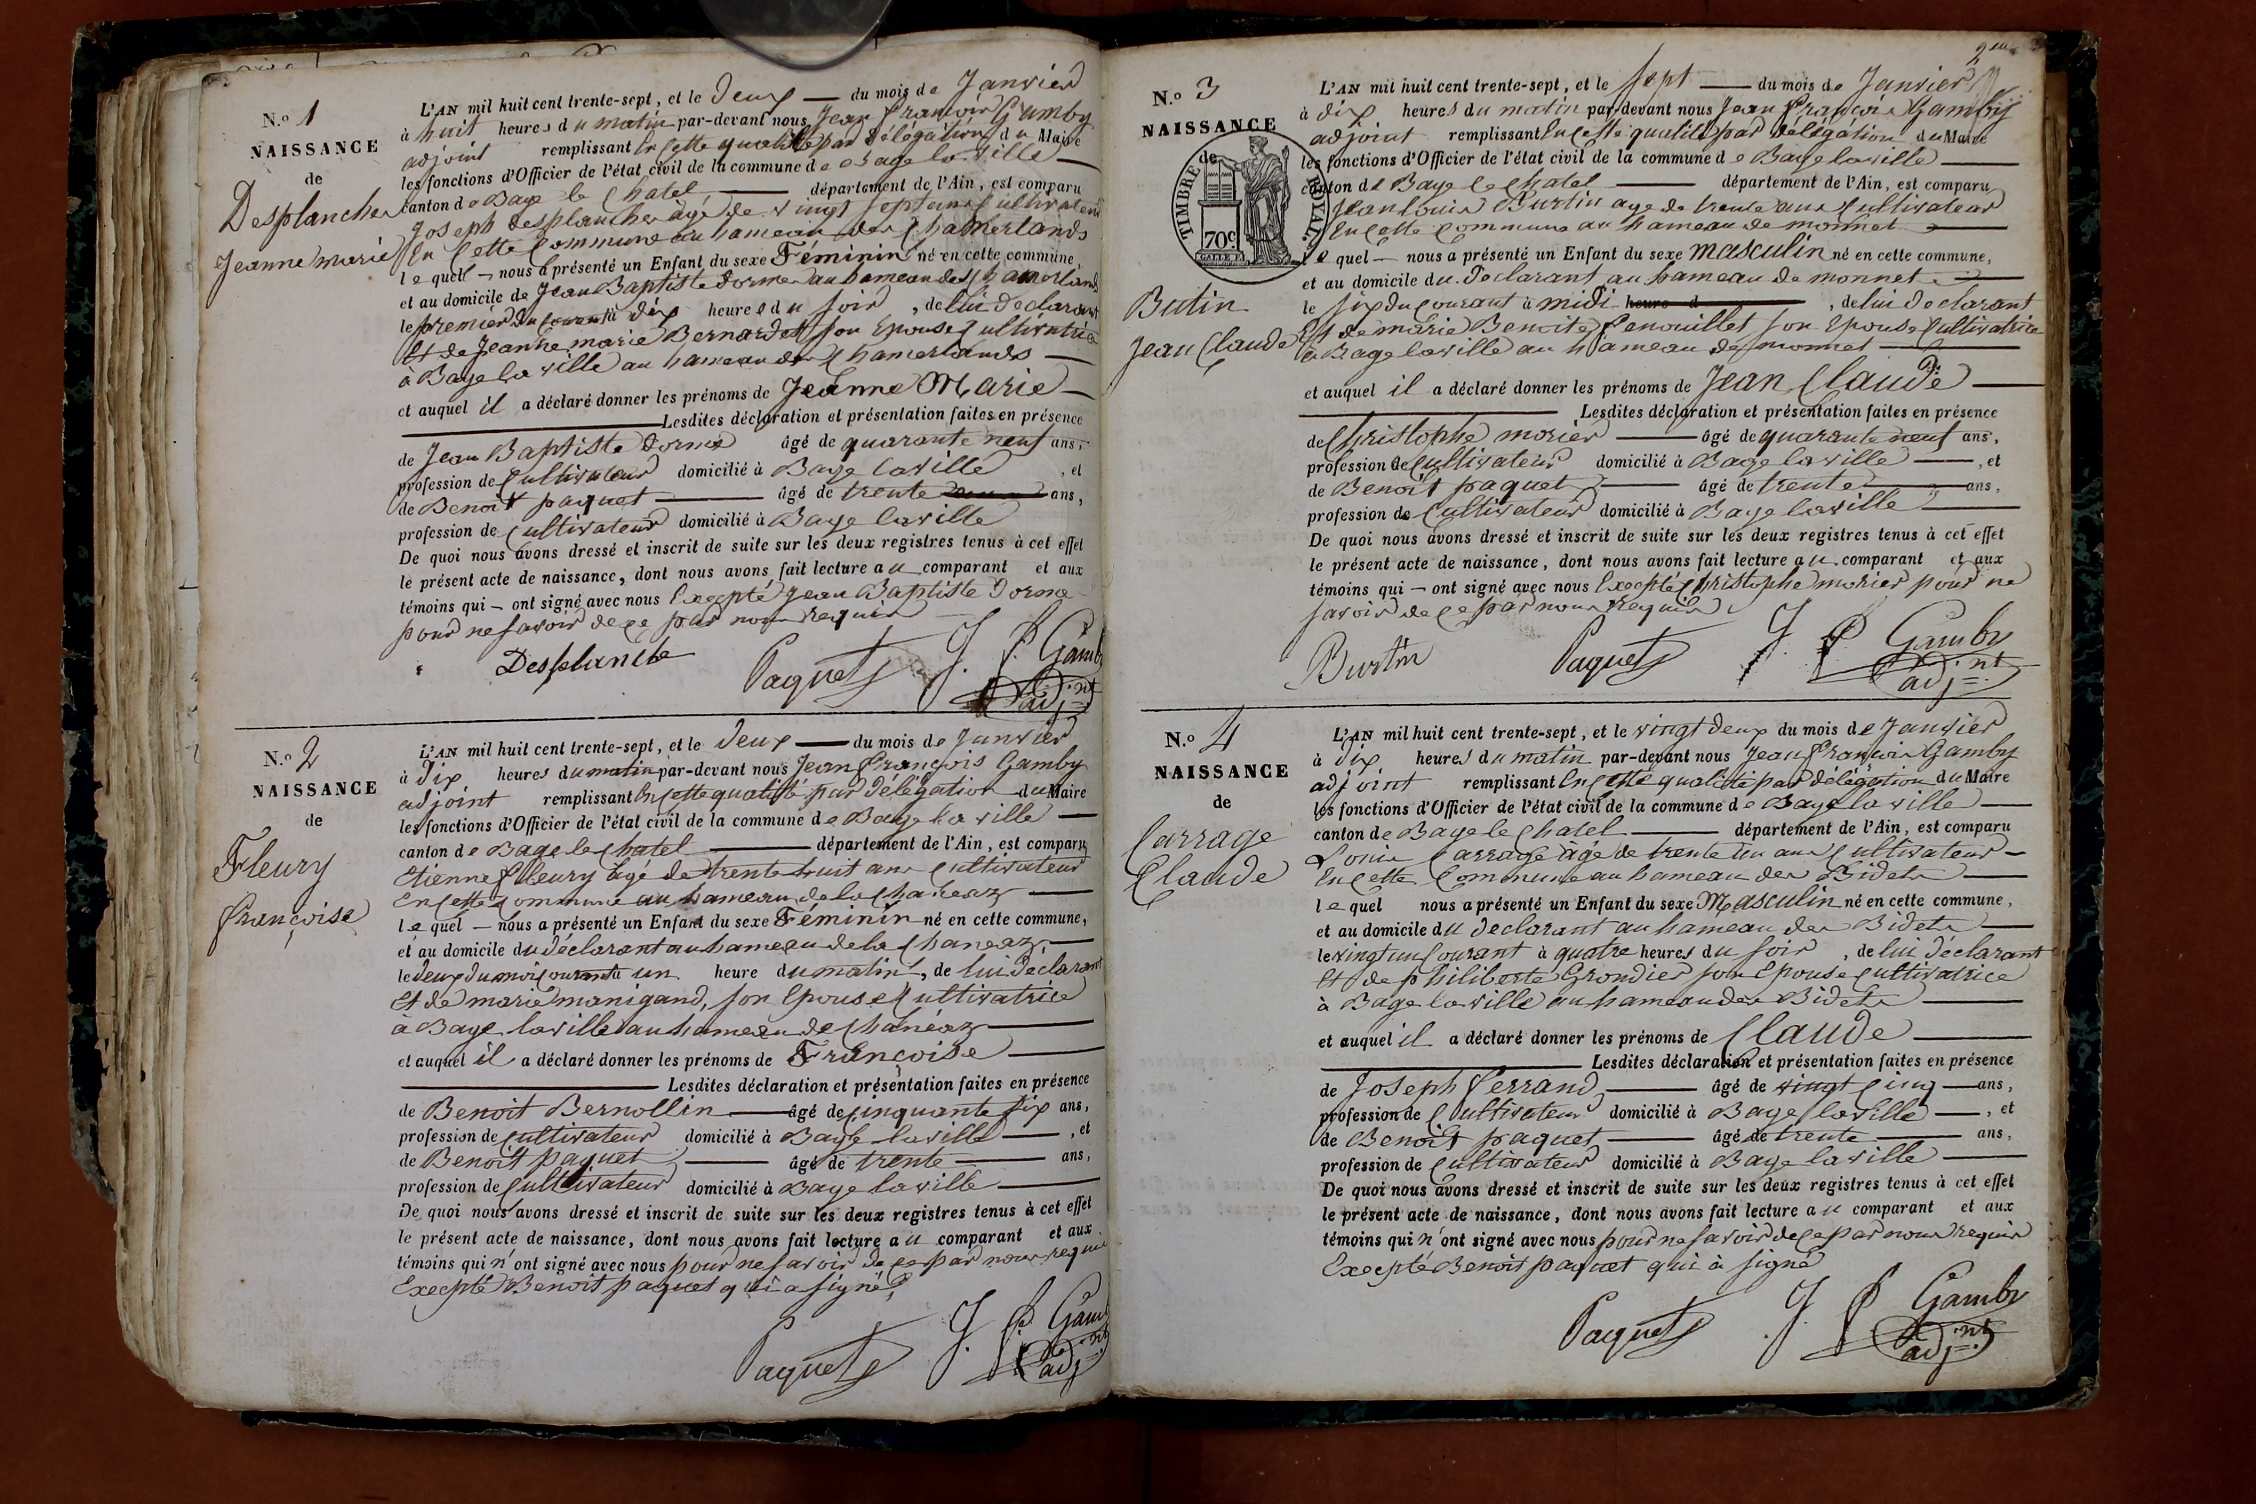 N.o 1
NAISSANCE
de
Desplanche
Jeanne marie
L'AN mil huit cent trente-sept, et le deux du mois de Janvier
à huit heures du matin par-devant nous Jean François Gamby
adjoint remplissant En cette qualité par délégation du Maire
les fonctions d'Officier de l'état civil de la commune de Bage la ville
canton de Bage le Chatel département de l'Ain, est comparu
Joseph Desplanche âgé de vingt sept ans Cultivateur
En Cette Commune au hameau des Chamerlands
lequel nous a présenté un Enfant du sexe Féminin né en cette commune,
et au domicile de Jean Baptiste dorme au hameau des Chamerlands
le premier du courant à dix heures du soir, de lui déclarant
Et de Jeanne marie Bernardet son Epouse Cultivatrice
à Bage la ville au hameau des Chamerlands
et auquel il a déclaré donner les prénoms de Jeanne Marie
Lesdites déclaration et présentation faites en présence
de Jean Baptiste dorme âgé de quarante neuf ans,
profession de Cultivateur domicilié à Bage laville, et
de Benoit paquet âgé de trente ans,
profession de Cultivateur domicilié à Bage laville
De quoi nous avons dressé et inscrit de suite sur les deux registres tenus à cet effet
le présent acte de naissance, dont nous avons fait lecture au comparant et aux
témoins qui ont signé avec nous Excepté Jean Baptiste Dorme
pour ne savoir de ce par nous requis
Desplanche Paquet J. F. Gamby
adj.nt
N.o 2
NAISSANCE
de
Fleury
françoise
L'AN mil huit cent trente-sept, et le deux du mois de Janvier
à dix heures du matin par-devant nous Jean François Gamby
adjoint remplissant En cette qualité par délégation du Maire
les fonctions d'Officier de l'état civil de la commune de Bage la ville
canton de Bage le Chatel département de l'Ain, est comparu
Etienne fleury âgé de trente huit ans Cultivateur
En cette Commune au hameau de la Chanéaz
lequel nous a présenté un Enfant du sexe Féminin né en cette commune,
et au domicile du déclarant au hameau de la Chaneaz
le deux du mois courant à un heure du matin, de lui déclarant
Et de marie manigand, son Epouse Cultivatrice
à Bage laville au hameau de Chanéaz
et auquel il a déclaré donner les prénoms de Françoise
Lesdites déclaration et présentation faites en présence
de Benoit Bernollin âgé de Cinquante six ans,
profession de Cultivateur domicilié à Bage laville, et
de Benoit paquet âgé de trente ans,
profession de Cultivateur domicilié à Bage laville
De quoi nous avons dressé et inscrit de suite sur les deux registres tenus à cet effet
le présent acte de naissance, dont nous avons fait lecture au comparant et aux
témoins qui n'ont signé avec nous pour ne savoir de ce par nous requis
Excepté Benoit paquet qui a signé,
Paquet J. F. Gamby
adj.nt
N.o 3
NAISSANCE
de
TIMBRE ROYAL.
70c
Butin
Jean Claude
L'AN mil huit cent trente-sept, et le sept du mois de Janvier
à dix heures du matin par-devant nous Jean François Gamby
adjoint remplissant En cette qualité par délégation du Maire
les fonctions d'Officier de l'état civil de la commune de Bage laville
canton de Bage le Chatel département de l'Ain, est comparu
Jean louis Burtin age de trente ans Cultivateur
En cette Commune au hameau de monnet
lequel nous a présenté un Enfant du sexe masculin né en cette commune,
et au domicile du déclarant au hameau de monnet
le six du courant à midi heure d, de lui déclarant
Et de marie Benoite fenouillet son Epouse Cultivatrice
à Bage laville au hameau de monnet
et auquel il a déclaré donner les prénoms de Jean Claude
Lesdites déclaration et présentation faites en présence
de Christophe morier âgé de quarante neuf ans,
profession de Cultivateur domicilié à Bage laville, et
de Benoit paquet âgé de trente ans,
profession de Cultivateur domicilié à Bage laville
De quoi nous avons dressé et inscrit de suite sur les deux registres tenus à cet effet
le présent acte de naissance, dont nous avons fait lecture au comparant et aux
témoins qui ont signé avec nous Excepté Christophe morier pour ne
savoir de ce par nous requis
Burtin Paquet J. F. Gamby
adj.nt
N.o 4
NAISSANCE
de
Carrage
Claude
L'AN mil huit cent trente-sept, et le vingt deux du mois de Janvier
à dix heures du matin par-devant nous Jean François Gamby
adjoint remplissant En cette qualité par délégation du Maire
les fonctions d'Officier de l'état civil de la commune de Bage laville
canton de Bage le Chatel département de l'Ain, est comparu
Louis Carrage âgé de trente un ans Cultivateur
En cette Commune au hameau des Bidets
lequel nous a présenté un Enfant du sexe Masculin né en cette commune,
et au domicile du déclarant au hameau des Bidets
le vingt un Courant à quatre heures du soir, de lui déclarant
Et de philiberte Grondier son Epouse Cultivatrice
à Bage laville au hameau des Bidets
et auquel il a déclaré donner les prénoms de Claude
Lesdites déclaration et présentation faites en présence
de Joseph ferrand âgé de vingt Cinq ans,
profession de Cultivateur domicilié à Bage laville, et
de Benoit paquet âgé de trente ans,
profession de Cultivateur domicilié à Bage laville
De quoi nous avons dressé et inscrit de suite sur les deux registres tenus à cet effet
le présent acte de naissance, dont nous avons fait lecture au comparant et aux
témoins qui n'ont signé avec nous pour ne savoir de ce par nous requis
Excepté Benoit paquet qui à signé
Paquet J. F. Gamby
adj.nt